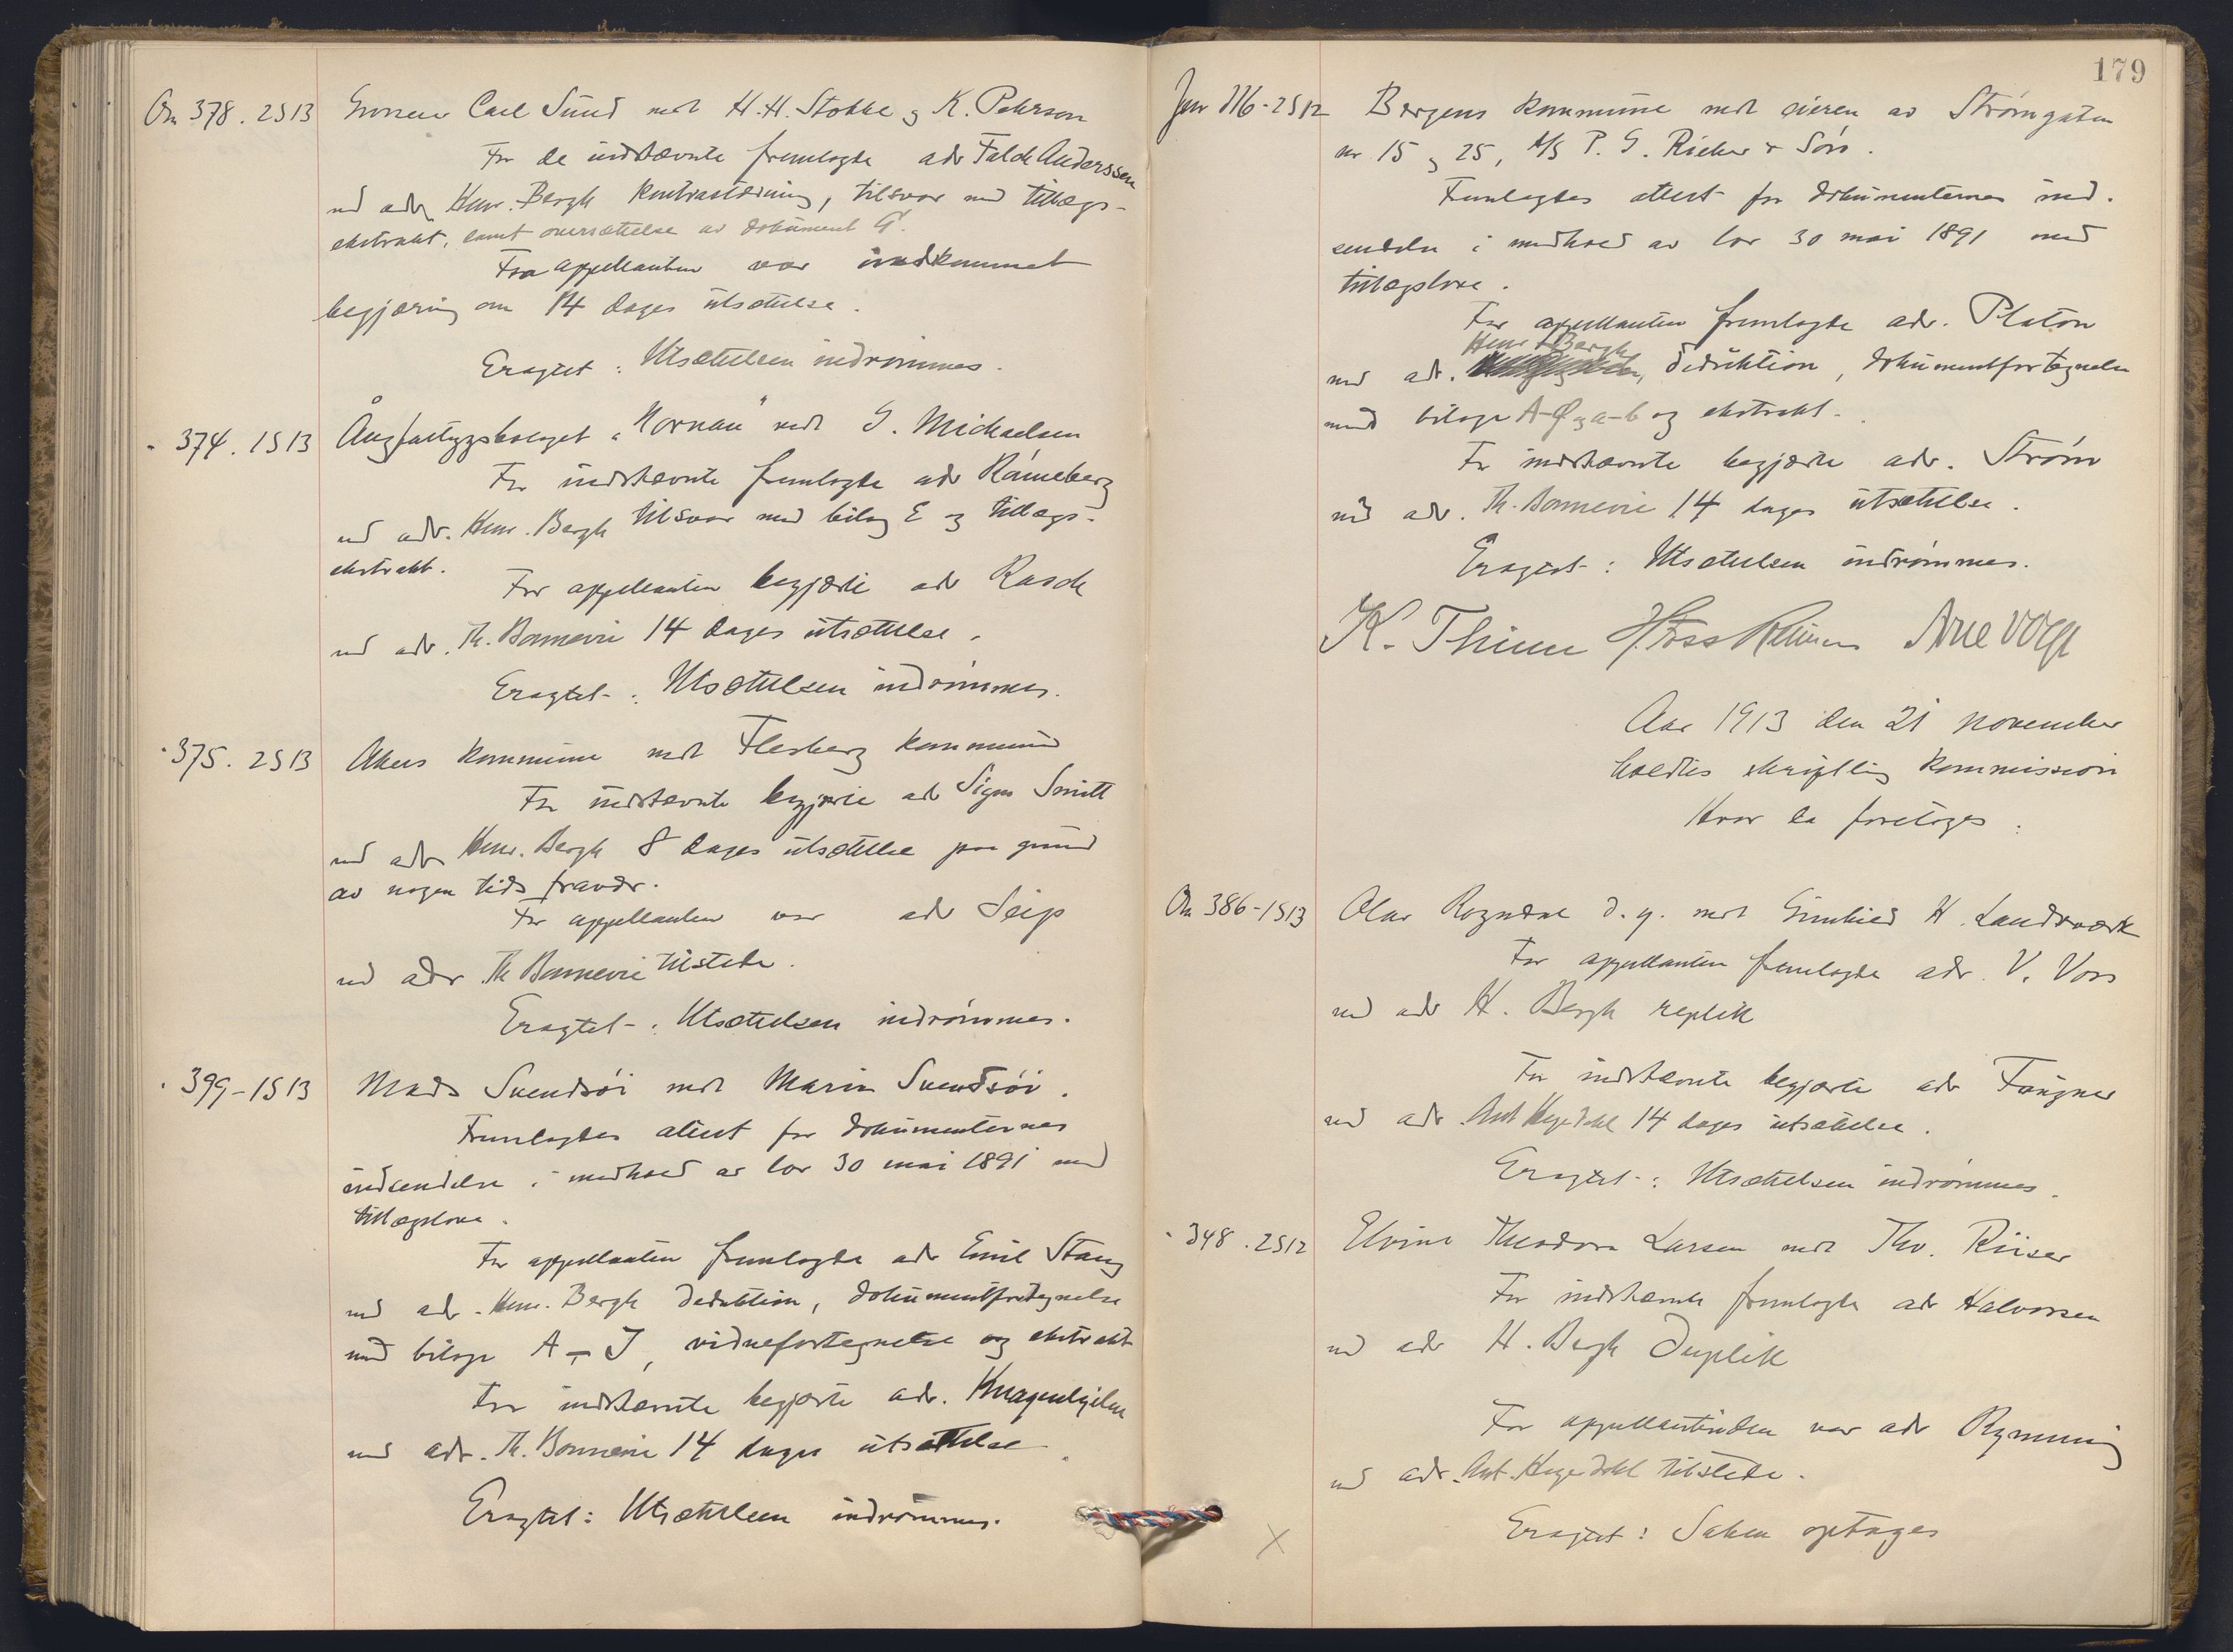 On 378. 2S13 Carl Sund mot H. H. Stokke og K. Pehrson
For de indstævnte fremlagde adv Falck Anderssen
ved adv Henr. Bergh kontrastævning, tilsvar med tillægs-
ekstrakt, samt oversættelse av dokument G.
Fra appellanten var indkommet
begjæring om 14 dages utsættelse.
Eragtet: Utsættelsen indrømmes.
" 374. 1S13 Ångfartygsbolaget "Nornan" mot S. Michaelsen
For indstævnte fremlagde adv Rønneberg
ved adv. Henr. Bergh tilsvar med bilag E og tillægs-
ekstrakt.
For appellanten begjærte adv Rasch
ved adv. Th. Bonnevie 14 dages utsættelse.
Eragtet: Utsættelsen indrømmes.
" 375. 2S13 Akers kommune mot Flesberg kommune
For indstævnte begjærte adv Sigm Smitt
ved adv Henr. Bergh 8 dages utsættelse paa grund
av nogen tids fravær.
For appellanten var adv Seip
ved adv Th Bonnevie tilstede.
Eragtet: Utsættelsen indrømmes.
" 399-1S13 Mads Svendsøi mot Marin Svendsøi.
Fremlagdes attest for dokumenternes
indsendelse i medhold av lov 30 mai 1891 med
tillægslove.
For appellanten fremlagde adv Emil Stang
ved adv. Henr. Bergh deduktion, dokumentfortegnelse
med bilage A-J, vidnefortegnelse og ekstrakt
For indstævnte begjærte adv. Knagenhjelm
ved adv. Th. Bonnevie 14 dages utsættelse.
Eragtet: Utsættelsen indrømmes.
179
Jnr 116-2S12 Bergens kommune mot eieren av Strømgaten
nr 15 og 25, A/S P. G. Rieber & Søn.
Fremlagdes attest for dokumenternes ind-
sendelse i medhold av lov 30 mai 1891 med
tillægslove.
For appellanten fremlagde adv. Platou
Henr Bergh
ved adv. deduktion, dokumentfortegnelse
med bilage A-Ø og a-b og ekstrakt.
For indstævnte begjærte adv. Strøm
ved adv. Th. Bonnevie 14 dages utsættelse.
Eragtet: Utsættelsen indrømmes.
K. Thinn Arne Vogt
Aar 1913 den 21 november
holdtes skriftlig kommission
Hvor da foretoges:
On 386-1S13 Olav Rogndal d. y. mot H. Landsværk
For appellanten fremlagde adv. V. Voss
ved adv H. Bergh replik
For indstævnte begjærte adv Fougner
ved adv. Ant Hegedahl 14 dages utsættelse.
Eragtet: Utsættelsen indrømmes.
" 348. 2S12 Elvine Theodora Larsen mot Thv. Riiser
For indstævnte fremlagde adv Halvorsen
ved adv H. Bergh Duplik
For appellantinden var adv Rynning
ved adv. Ant. Hegedahl tilstede.
X Eragtet: Saken optages